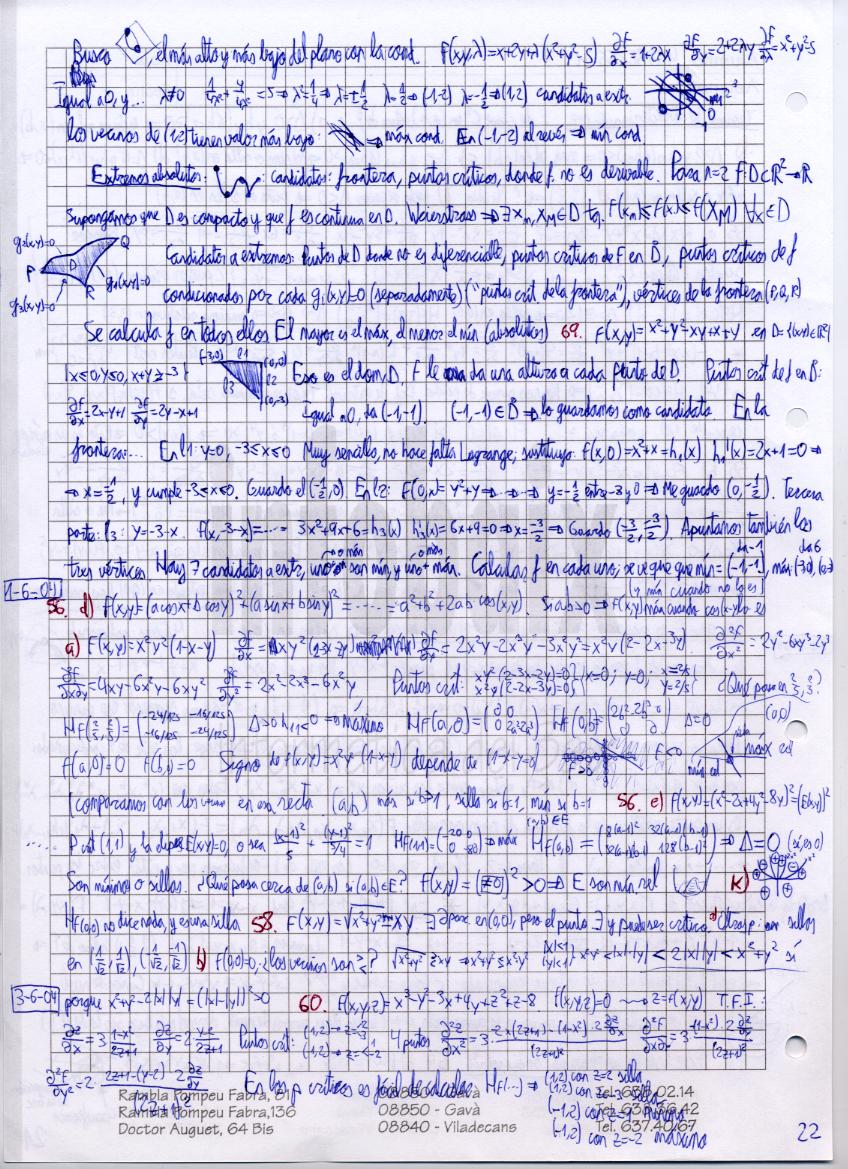 Busco , el más alto y más bajo del plano con la cond. F(x,y,λ)=x+2y+λ(x²+y²-5) ∂F/∂x=1+2λx ∂F/∂y=2+2λy ∂F/∂λ=x²+y²-5
Igual a 0, y... λ≠0 1/4λ²+ =5 ⇒ λ²=1/4 ⇒ λ=±1/2 λ=1/2 ⇒ (-1,-2) λ=-1/2 ⇒ (1,2) candidatos a extr.
los vecinos de (1,2) tienen valor más bajo: ⇒ máx cond. En (-1,-2) al revés ⇒ mín cond.
Extremos absolutos: : candidatos: frontera, puntos críticos, donde f no es derivable. Para n=2 f:D⊂R²→R
Supongamos que D es compacto y que f es continua en D. Weierstrass ⇒ ∃ xm, xM ∈ D tq. f(xm)≤f(x)≤f(xM) ∀x∈D
g2(x,y)=0 Q P D R g1(x,y)=0 g3(x,y)=0
Candidatos a extremos: Puntos de D donde no es diferenciable, puntos críticos de f en D, puntos críticos de f
condicionados por cada gi(x,y)=0 (separadamente) ("puntos crít de la frontera"), vértices de la frontera (P,Q,R)
Se calcula f en todos ellos El mayor es el máx, el menor el mín (absolutos) 69. f(x,y)=x²+y²-xy+x+y en D={(x,y)∈R²|
|x≤0, y≤0, x+y≥-3} (-3,0) l1 (0,0) l2 l3 (0,-3) Ese es el dom, D. f le da una altura a cada punto de D. Puntos crít de f en D:
∂f/∂x=2x-y+1 ∂f/∂y=2y-x+1 Igual a 0, da (-1,-1). (-1,-1)∈D ⇒ lo guardamos como candidato En la
frontera:... En l1: y=0, -3≤x≤0 Muy sencillo, no hace falta Lagrange, sustituyo: f(x,0)=x²+x=h1(x) h1'(x)=2x+1=0 ⇒
⇒ x=-1/2, y cumple -3≤x≤0. Guardo el (-1/2,0). En l2: f(0,y)=y²+y ⇒ ... ⇒ y=-1/2 entre -3 y 0 ⇒ Me guardo (0,-1/2). Tercera
parte: l3: y=-3-x. f(x,-3-x)=.... 3x²+9x+6=h3(x) h3'(x)=6x+9=0 ⇒ x=-3/2 ⇒ Guardo (-3/2,-3/2). Apuntamos también los
tres vértices. Hay 7 candidatos a extr, uno o más son mín, y uno o más máx. Calculas f en cada uno; se ve que mín=(-1,-1), da -1 máx (-3,0), (0,-3) da 6
1-6-04
56. d) f(x,y)=(a cos x+b cos y)²+(a sin x+b sin y)²=.....=a²+b²+2ab cos(x-y). Si ab>0 ⇒ f(x,y) máx cuando cos(x-y) lo es (y mín cuando no lo es)
a) f(x,y)=x²y²(1-x-y) ∂f/∂x= xy²(2-3x-2y) ∂f/∂y=2x²y-2x³y-3x²y²=x²y(2-2x-3y). ∂²f/∂x²=2y²-6xy²-2y³
∂²f/∂x∂y=4xy-6x²y-6xy² ∂²f/∂y²=2x²-2x³-6x²y Puntos crít: xy²(2-3x-2y)=0 x²y(2-2x-3y)=0 {x=0; y=0; x=2/5 y=2/5 ¿Qué pasa en 2/5, 2/5?
Hf(2/5,2/5)=(-24/125 -16/125 -16/125 -24/125) Δ>0 h11<0 ⇒ máximo Hf(a,0)=(0 0 0 2a²-2a³) Hf(0,b)=(2b²-2b³ 0 0 0) Δ=0 (0,0)
f(a,0)=0 f(0,b)=0 Signo de f(x,y)=x²y²(1-x-y) depende de (1-x-y=0) f>0 f<0 mín rel silla máx rel
(comparamos con los vecinos en esa recta (0,b) máx si b>1, silla si b=1, mín si b<1 56. e) f(x,y)=(x²-2x+4y²-8y)²=(E(x,y))²
..... P crít (1,1) y la elipse E(x,y)=0, o sea (x-1)²/5 + (y-1)²/5/4 = 1 Hf(1,1)=(-20 0 0 -80) ⇒ máx Hf(a,b)=(8(a-1)² 32(a-1)(b-1) 32(a-1)(b-1) 128(b-1)²) ⇒ Δ=0 (sí, es 0) (a,b)∈E
Son mínimos o sillas. ¿Qué pasa cerca de (a,b) si (a,b)∈E? f(x,y)=(≠0)²>0 ⇒ E son mín rel k)
Hf(0,0) no dice nada, y es una silla 58. f(x,y)=√x²+y² xy ∃ ∂parc. en (0,0), pero el punto ∃ y puede ser crítico. Otros p: son sillas
en (1/√2, 1/√2), (-1/√2, -1/√2) b) f(0,0)=0, ¿los vecinos son >? √x²+y² ≥ xy ⇒ x²+y² ≥ x²y² |x|<1 |y|<1 x²y²<|x||y|<2|x||y|<x²+y² sí
3-6-04 porque x²+y²-2|x||y|=(|x|-|y|)²>0 60. f(x,y,z)=x³-y²-3x+4y+z²+z-8 f(x,y,z)=0 ⟿ z=f(x,y) T.F.I.:
∂z/∂x=3 1-x²/2z+1 ∂z/∂y=2 y-2/2z+1 Puntos crít: (1,2) → z= (-1,2) → z= 4 puntos ∂²z/∂x²=3· -2x(2z+1)-(1-x²)·2 ∂z/∂x /(2z+1)² ∂²f/∂x∂y=3· -(1-x²)·2 ∂z/∂y /(2z+1)²
∂²f/∂y²=2· 2z+1-(y-2)·2 ∂z/∂y /(2z+1)² En los p críticos es fácil de calcular Hf(...) ⇒ (1,2) con z=2 silla
(1,2) con z=-3 silla
(-1,2) con z=1 mínimo
(-1,2) con z=-2 máximo
Rambla Pompeu Fabra, 81 08850 - Gavà
Rambla Pompeu Fabra,136 08850 - Gavà
Doctor Auguet, 64 Bis 08840 - Viladecans Tel. 637.40.67
22